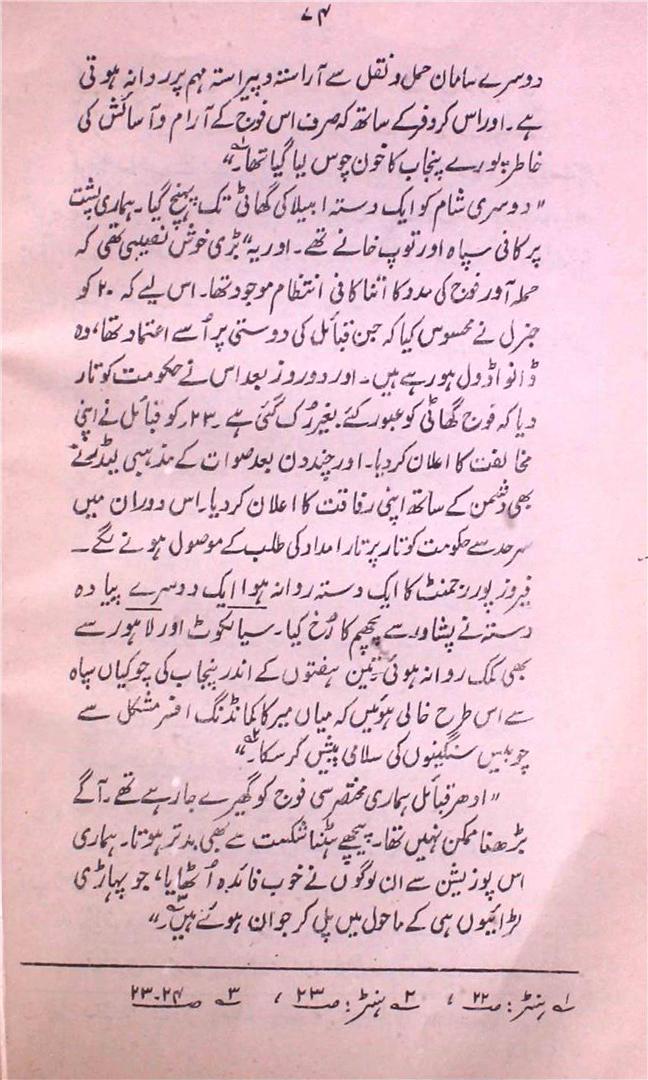 ۷۴
دوسرے سامان حمل و نقل سے آراستہ و پیراستہ مہم پر روانہ ہوتی
ہے۔ اور اس کروفر کے ساتھ کہ صرف اس فوج کے آرام و آسائش کی
خاطر پورے پنجاب کا خون چوس لیا گیا تھا۔؎۱"
"دوسری شام کو ایک دستہ امبیلا کی گھاٹی تک پہنچ گیا۔ ہماری پشت
پر کافی سپاہ اور توپ خانے تھے۔ اور یہ" بڑی خوش نصیبی تھی کہ
حملہ آور فوج کی مدد کا اتنا کافی انتظام موجود تھا۔ اس لیے کہ ۲۰ کو
جنرل نے محسوس کیا کہ جن قبائل کی دوستی پر اُسے اعتماد تھا، وہ
ڈانواڈول ہو رہے ہیں۔ اور دو روز بعد اس نے حکومت کو تار
دیا کہ فوج گھاٹی کو عبور کئے بغیر رُک گئی ہے ۔۲۳۔ کو قبائل نے اپنی
مخالفت کا اعلان کر دیا۔ اور چند دن بعد صوات کے مذہبی لیڈر نے
بھی دشمن کے ساتھ اپنی رفاقت کا اعلان کر دیا۔ اس دوران میں
سرحد سے حکومت کو تار پر تار امداد کی طلب کے موصول ہونے لگے۔
فیروز پور رجمنٹ کا ایک دستہ روانہ ہوا ایک دوسرے پیادہ
دستہ نے پشاور سے پچھم کا رُخ کیا۔ سیالکوٹ اور لاہور سے
بھی کمک روانہ ہوئی۔ تین ہفتوں کے اندر پنجاب کی چوکیاں سپاہ
سے اس طرح خالی ہوئیں کہ میاں میر کا کمانڈنگ افسر مشکل سے
چوبیس سنگینوں کی سلامی پیش کر سکا۔؎۲"
"ادھر قبائل ہماری مختصر سی فوج کو گھیرے جا رہے تھے۔ آگے
بڑھنا ممکن نہیں تھا۔ پیچھے ہٹنا شکست سے بھی بدتر ہوتا۔ ہماری
اس پوزیشن سے ان لوگوں نے خوب فائدہ اُٹھایا، جو پہاڑی
لڑائیوں ہی کے ماحول میں پل کر جوان ہوئے ہیں۔؎۳"
؎۱ ہنٹر: صـ۲۲ ، ؎۲ ہنٹر: صـ۲۳ ، ؎۳ صـ۲۳۔۲۴